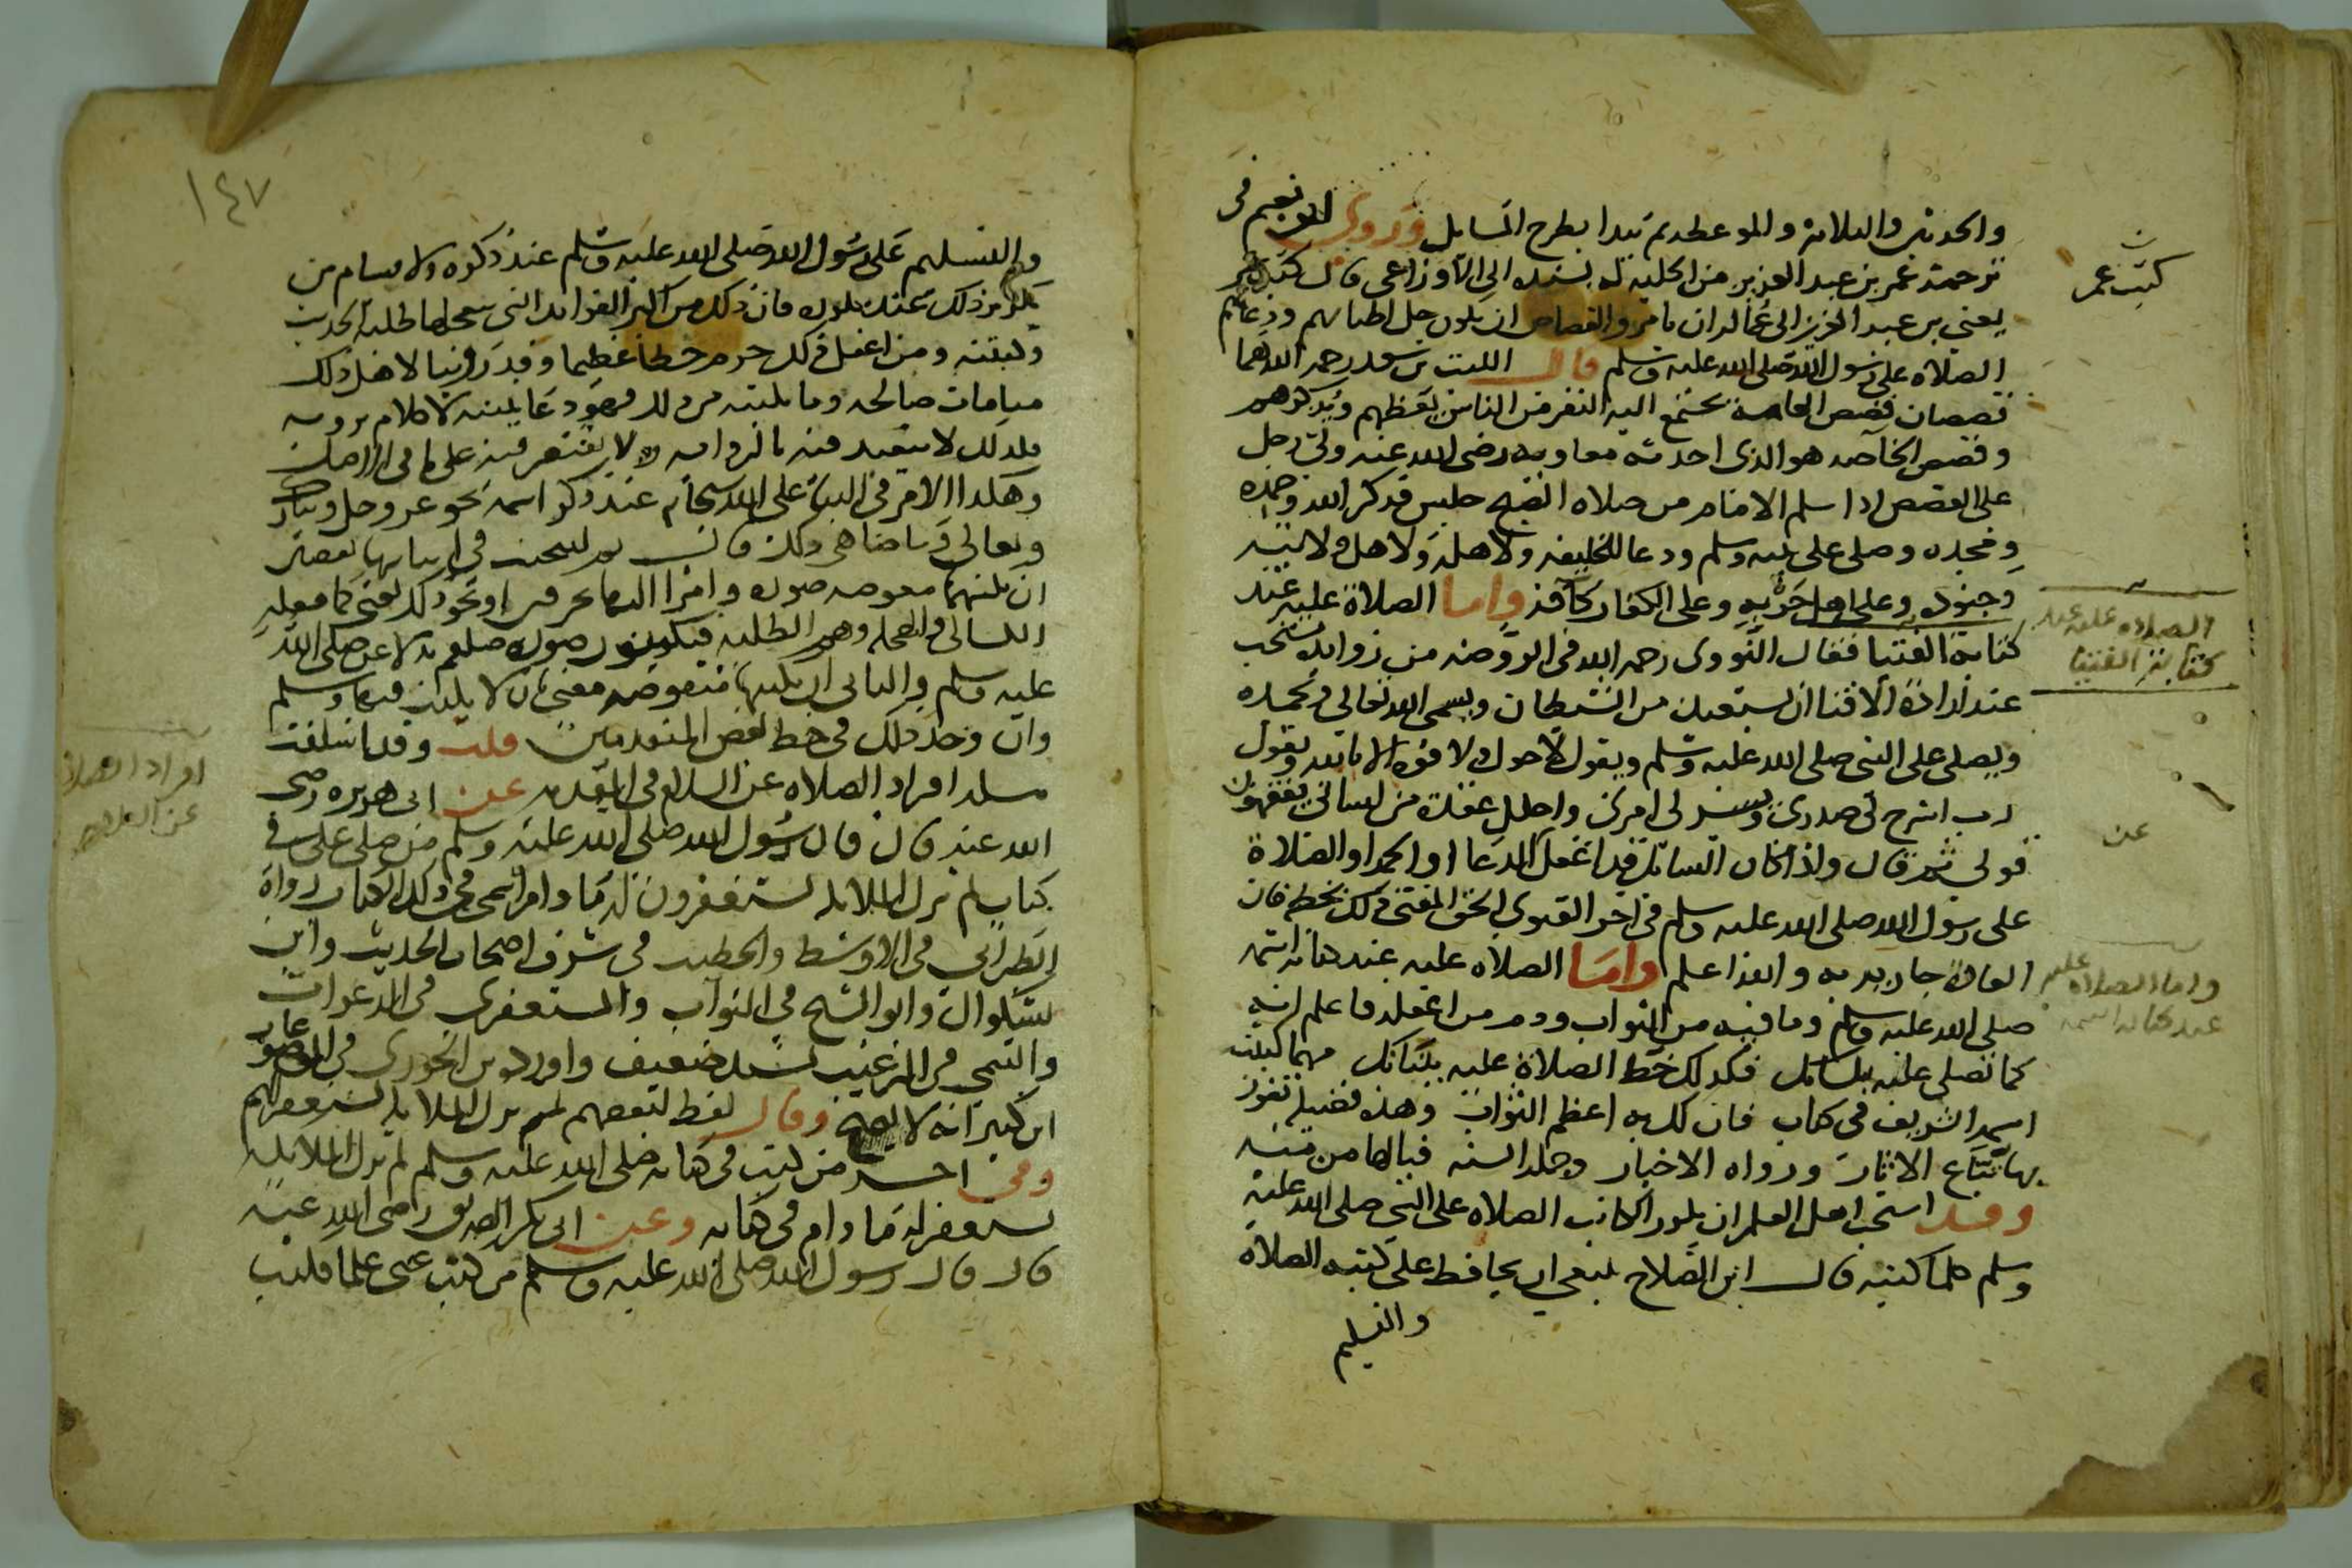 والحديثين والثلاثة والموعظة ثم تبدا بطرح المسايل وروى ابو نعيم في
ترجمة عمر بن عبد العزيز من الحلية له بسنده الى الاوزاعي قال كتب عمر
يعني بن عبد العزيز الى عماله ان يامروا القصاص ان يكون جل اطنابهم ودعايهم
الصلاه على رسول الله صلى الله عليه وسلم قال الليث بن سعد رحمه الله هما
قصصان قصص العامة يجتمع اليه النفر من الناس يعظهم ويذكرهم
وقصص الخاصه هو الذي احدثه معاويه رضي الله عنه ولى رجل
على القصص اذا سلم الامام من صلاه الصبح جلس فذكر الله وحمده
ومجده وصلى على نبيه وسلم ودعا للخليفه ولاهله ولاهل ولايته
وجنوده وعلى اهل حربه وعلى الكفار كافة واما الصلاة عليه عند
كتابة الفتيا فقال النووي رحمه الله في الروضه من زوايده يستحب
عند ارادة الافتا ان يستعيذ من الشيطان ويسمى الله تعالى ويحمده
ويصلى على النبي صلى الله عليه وسلم ويقول لا حول ولا قوه الا بالله ويقول
رب اشرح لي صدري ويسر لي امري واحلل عقدة من لساني يفقهوا
قولي ثم قال واذا كان السائل قد اغفل الدعا او الحمد او الصلاة
على رسول الله صلى الله عليه وسلم في اخر الفتوى الحق المفتي ذلك بخطه فان
العادة جارية به والله اعلم واما الصلاه عليه عند كتابة اسمه
صلى الله عليه وسلم وما فيه من الثواب وذم من اغفله فاعلم انه
كما تصلى عليه بلسانك فكذلك خط الصلاة عليه ببنانك مهما كتبت
اسمه الشريف في كتاب فان لك به اعظم الثواب وهذه فضيلة تفوز
بها تباع الاثار ورواه الاخبار وحملة السنه فيالها من منه
وقد استحب اهل العلم ان يكرر الكاتب الصلاه على النبي صلى الله عليه
وسلم كلما كتبه قال ابن الصلاح ينبغي ان يحافظ على كتبه الصلاه
والتسليم
كتب عمر
الصلاه عليه عند
كتابة الفتيا
عن
واما الصلاه عليه
عند كتابه اسمه
١٤٧
والتسليم على رسول الله صلى الله عليه وسلم عند ذكره ولا يسام من
تكرير ذلك عند تكرره فان ذلك من اكبر الفوايد التي يتعجلها طلبة الحديث
وكتبته ومن اغفل ذلك حرم حظا عظيما وقد راينا لاهل ذلك
منامات صالحه وما يكتبه من ذلك فهو دعا يثبته لا كلام يرويه
فلذلك لا يتقيد فيه بالروايه ولا يقتصر فيه على ما في الاصل
وهكذا الامر في الثنا على الله سبحانه عند ذكر اسمه نحو عز وجل وتبارك
وتعالى وما ضاهى ذلك قال ثم ليتجنب في اثباتها نقصين
ان يكتبها منقوصه صوره رامزا اليها بحرفين او نحو ذلك يعني كما يفعله
الكسالى والجهله وعوام الطلبه فيكتبون صوره صلعم بدلا عن صلى الله
عليه وسلم والثاني ان يكتبها منقوصه معنى بان لا يكتب فيها وسلم
وان وجد ذلك في خط بعض المتقدمين قلت وقد اسلفت
مسله افراد الصلاه عن السلام في المقدمه عن ابي هريره رضي
الله عنه قال قال رسول الله صلى الله عليه وسلم من صلى علي في
كتاب لم تزل الملائكه تستغفرون له ما دام اسمى في ذلك الكتاب رواه
الطبراني في الاوسط والخطيب في شرف اصحاب الحديث وابن
بشكوال وابو الشيخ في الثواب والمستغفري في الدعوات
والتيمي في الترغيب بسند ضعيف واورده بن الجوزي في الموضوعات وقال
ابن كثير انه لا يصح وقال لفظ لبعضهم لم تزل الملائكه تستغفر لهم
وفي اخر من كتب في كتابه صلى الله عليه وسلم لم تزل الملائكه
تستغفر له ما دام في كتابه وعن ابي بكر الصديق رضي الله عنه
قال قال رسول الله صلى الله عليه وسلم من كتب عني علما فكتب
افراد الصلاة
عن السلام